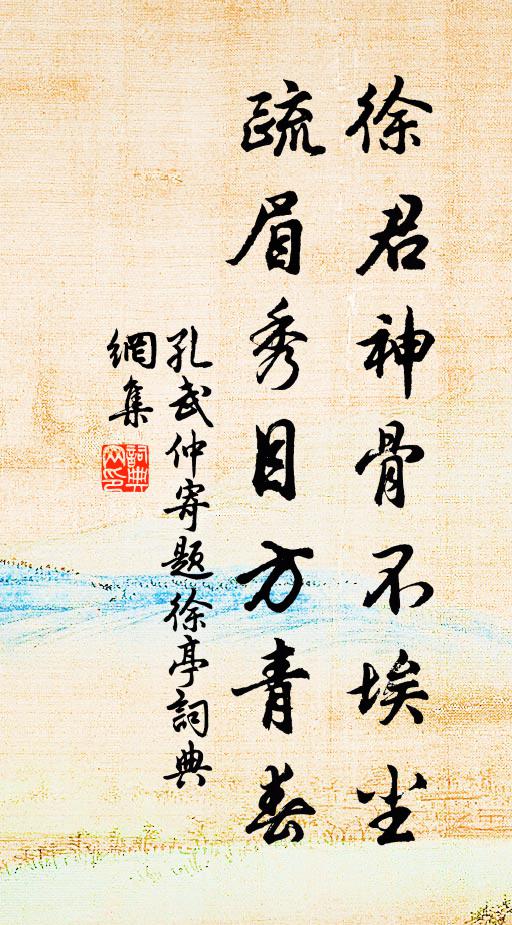 徐君神骨不埃尘
疏眉秀目方青春
孔武仲寄题徐亭詞典
網集
詞典
网印